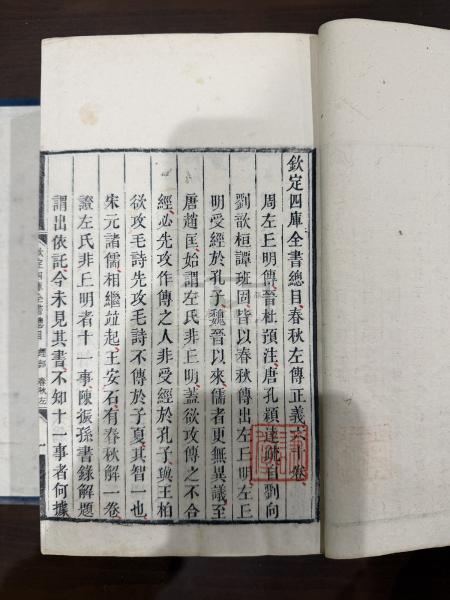 欽定四庫全書總目春秋左傳正義六十卷
周左丘明傳晉杜預注唐孔穎達疏自劉向
劉歆桓譚班固皆以春秋傳出左丘明左丘
明受經於孔子魏晉以來儒者更無異議至
唐趙匡始謂左氏非丘明蓋欲攻傳之不合
經必先攻作傳之人非受經於孔子與王柏
欲攻毛詩先攻毛詩不傳於子夏其智一也
宋元諸儒相繼竝起王安石有春秋解一卷
證左氏非丘明者十一事陳振孫書錄解題
謂出依託今未見其書不知十一事者何據
欽定四庫全書總目 經部 春秋左 一